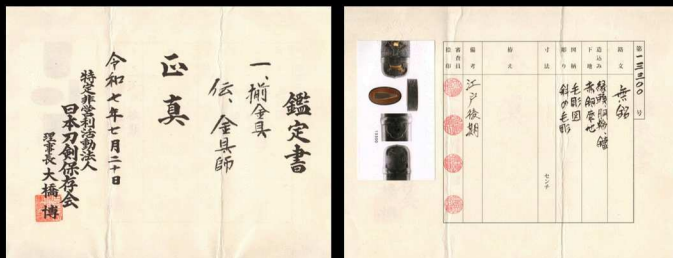 鑑定書
一、揃金具
伝、金具師
正真
令和七年七月二十日
特定非営利活動法人
日本刀剣保存会
理事長 大橋 博
第一三三〇〇号
銘文 無銘
造込み
下地
図柄
彫り
毛彫図
斜め毛彫
寸法 センチ
拵式
備考 江戸後期
審査員